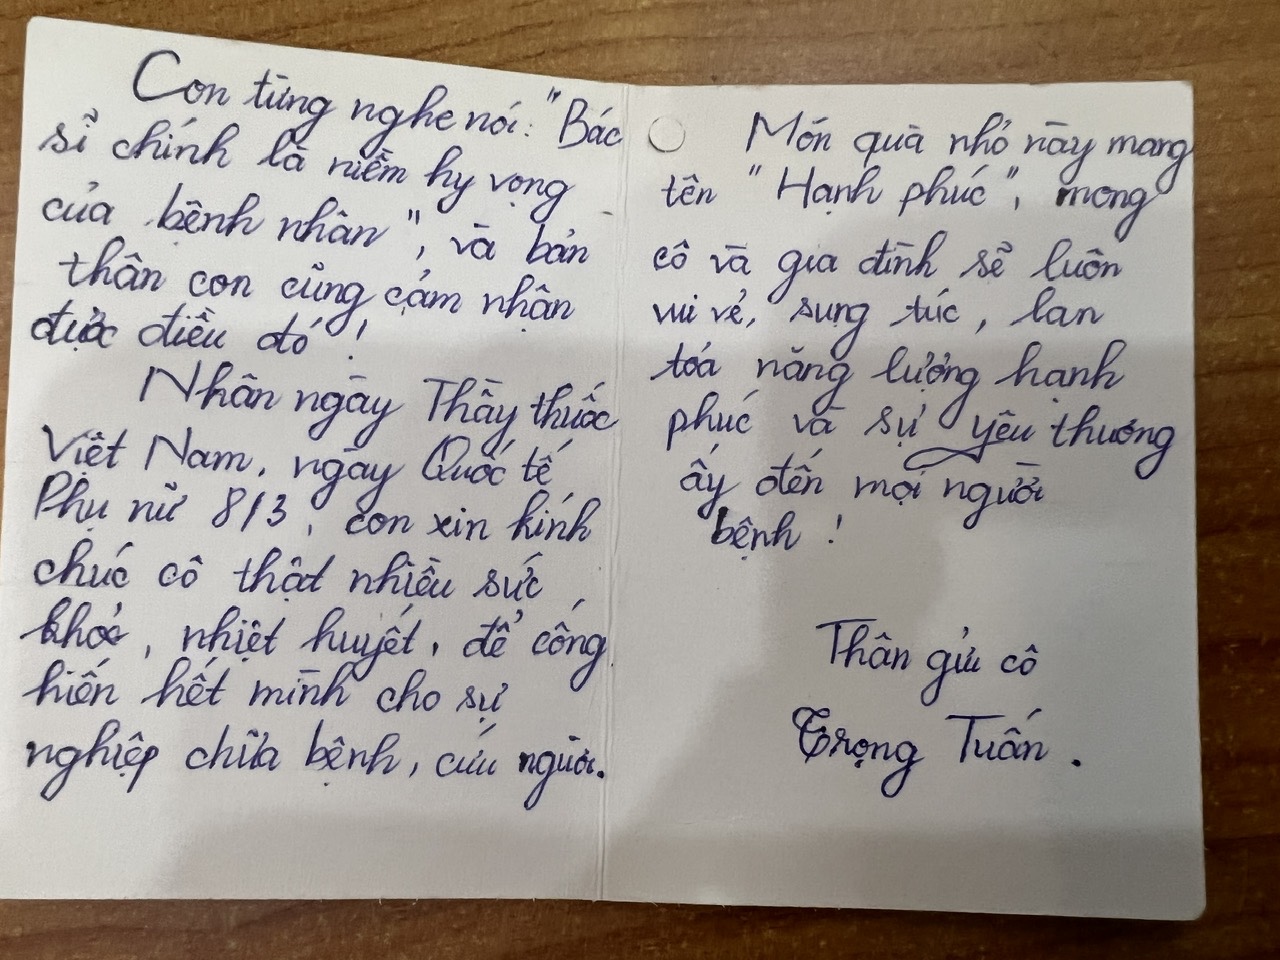 Con từng nghe nói: "Bác
sĩ chính là niềm hy vọng
của bệnh nhân", và bản
thân con cũng cảm nhận
được điều đó !
Nhân ngày Thầy thuốc
Việt Nam, ngày Quốc tế
Phụ nữ 8/3, con xin kính
chúc cô thật nhiều sức
khỏe, nhiệt huyết, để cống
hiến hết mình cho sự
nghiệp chữa bệnh, cứu người.
Món quà nhỏ này mang
tên "Hạnh phúc", mong
cô và gia đình sẽ luôn
vui vẻ, sung túc, lan
toả năng lượng hạnh
phúc và sự yêu thương
ấy đến mọi người
bệnh !
Thân gửi cô
Trọng Tuấn.